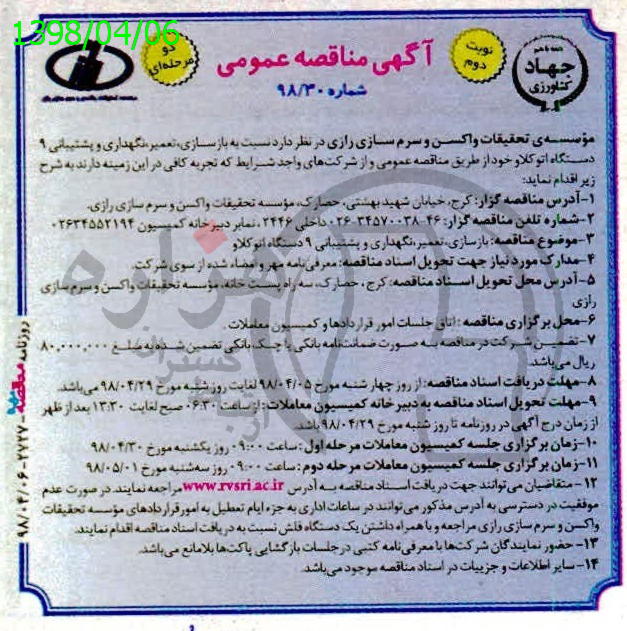 1398/04/06
نوبت دوم
دو مرحله‌ای
جهاد
کشاورزی
آگهی مناقصه عمومی
شماره ۹۸/۳۰
مؤسسه‌ی تحقیقات واکسن و سرم سازی رازی در نظر دارد نسبت به بازسازی، تعمیر، نگهداری و پشتیبانی ۹
دستگاه اتوکلاو خود از طریق مناقصه عمومی و از شرکت‌های واجد شرایط که تجربه کافی در این زمینه دارند به شرح
زیر اقدام نماید:
۱-آدرس مناقصه گزار: کرج، خیابان شهید بهشتی، حصارک، مؤسسه تحقیقات واکسن و سرم سازی رازی.
۲-شماره تلفن مناقصه گزار: ۴۶-۳۴۵۷۰۰۳۸-۰۲۶ داخلی ۲۴۴۶، نمابر دبیرخانه کمیسیون ۰۲۶۳۴۵۵۲۱۹۴
۳-موضوع مناقصه: بازسازی، تعمیر، نگهداری و پشتیبانی ۹ دستگاه اتوکلاو
۴-مدارک مورد نیاز جهت تحویل اسناد مناقصه: معرفی‌نامه مهر و امضاء شده از سوی شرکت.
۵-آدرس محل تحویل اسناد مناقصه: کرج، حصارک، سه راه پست خانه، مؤسسه تحقیقات واکسن و سرم سازی
رازی
۶-محل برگزاری مناقصه: اتاق جلسات امور قراردادها و کمیسیون معاملات.
۷-تضمین شرکت در مناقصه به صورت ضمانتنامه بانکی یا چک بانکی تضمین شده به مبلغ ۸۰,۰۰۰,۰۰۰
ریال می‌باشد.
۸-مهلت دریافت اسناد مناقصه: از روز چهار شنبه مورخ ۹۸/۰۴/۰۵ لغایت روز شنبه مورخ ۹۸/۰۴/۲۹ می‌باشد.
۹-مهلت تحویل اسناد مناقصه به دبیرخانه کمیسیون معاملات: از ساعت ۰۶:۳۰ صبح لغایت ۱۳:۳۰ بعد از ظهر
از زمان درج آگهی در روزنامه تا روز شنبه مورخ ۹۸/۰۴/۲۹ باشد.
۱۰-زمان برگزاری جلسه کمیسیون معاملات مرحله اول: ساعت ۰۹:۰۰ روز یکشنبه مورخ ۹۸/۰۴/۳۰
۱۱-زمان برگزاری جلسه کمیسیون معاملات مرحله دوم: ساعت ۰۹:۰۰ روز سه‌شنبه مورخ ۹۸/۰۵/۰۱
۱۲-متقاضیان می‌توانند جهت دریافت اسناد مناقصه به آدرس www.rvsri.ac.ir مراجعه نمایند. در صورت عدم
موفقیت در دسترسی به آدرس مذکور می‌توانند در ساعات اداری به جزء ایام تعطیل به امور قراردادهای مؤسسه تحقیقات
واکسن و سرم سازی رازی مراجعه و با همراه داشتن یک دستگاه فلش نسبت به دریافت اسناد مناقصه اقدام نمایند.
۱۳-حضور نمایندگان شرکت‌ها با معرفی نامه کتبی در جلسات بازگشایی پاکت‌ها بلامانع می‌باشد.
۱۴-سایر اطلاعات و جزییات در اسناد مناقصه موجود می‌باشد.
روزنامه مناقصه ۲۷۲۷-۹۸/۰۴/۰۶
هزاره